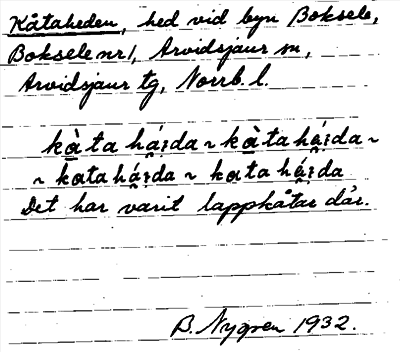 Kåtaheden, hed vid byn Boksele,
Boksele nr 1, Arvidsjaur sn,
Arvidsjaur tg, Norrb. l.
kàta háịda ~ kàta háịda ~
~ kata háịda ~ kata háịda
Det har varit lappkåtar där.
B. Nygren 1932.